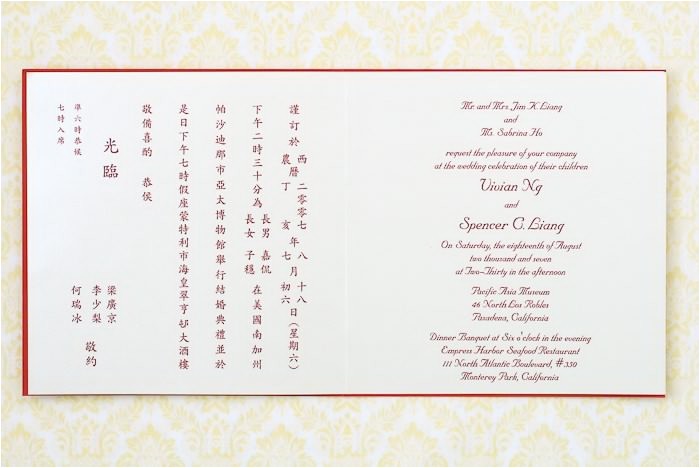 謹訂於 西曆二００七年八月十八日(星期六)
農丁亥七初六
下午二時三十分為 長男嘉侃 在美國南加州
長女子穩
帕沙迪那市亞太博物館舉行結婚典禮並於
是日下午七時假座蒙特利市海皇翠亨邨大酒樓
敬備喜酌 恭候
光臨
梁廣京
李少梨 敬約
何瑞冰
準六時恭候
七時入席
Mr. and Mrs. Jim K. Liang
and
Ms. Sabrina Ho
request the pleasure of your company
at the wedding celebration of their children
Vivian Ng
and
Spencer C. Liang
On Saturday, the eighteenth of August
two thousand and seven
at Two-Thirty in the afternoon
Pacific Asia Museum
46 North Los Robles
Pasadena, California
Dinner Banquet at Six o'clock in the evening
Empress Harbor Seafood Restaurant
111 North Atlantic Boulevard, #350
Monterey Park, California